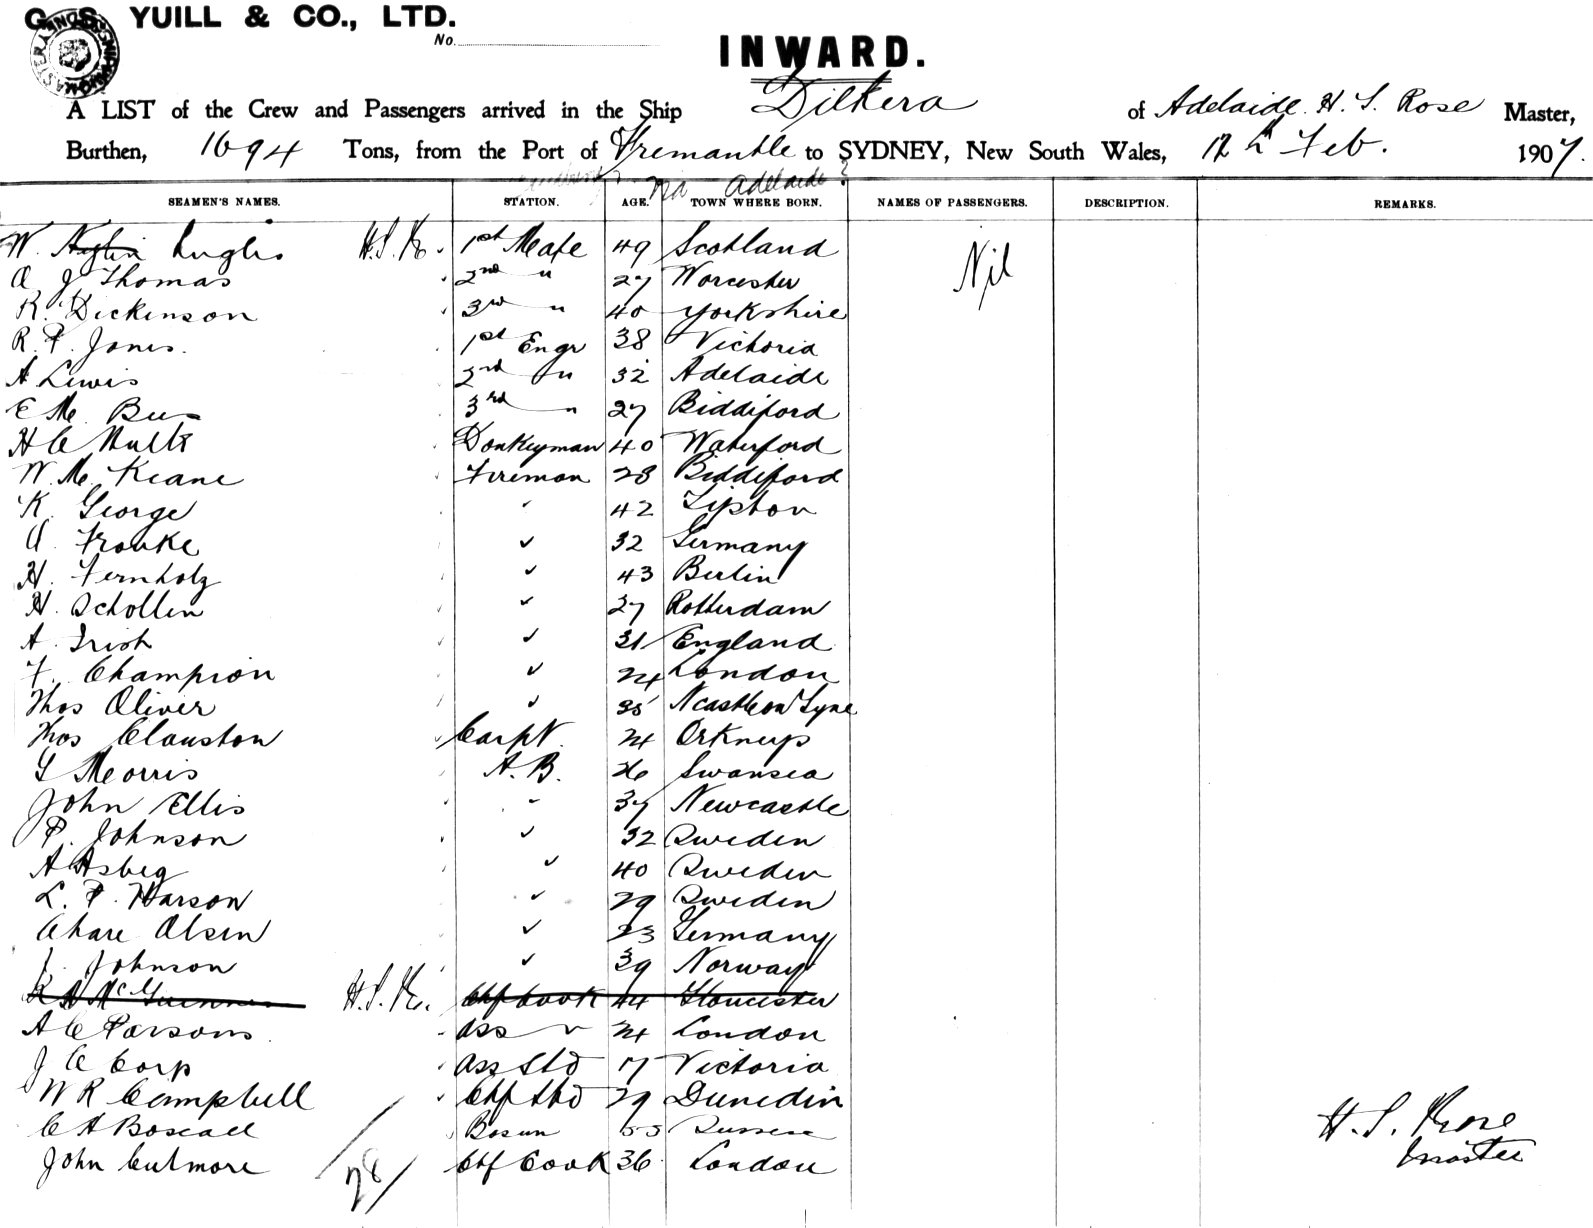 G. S. YUILL & CO., LTD.
No.
INWARD.
A LIST of the Crew and Passengers arrived in the Ship Dilkera of Adelaide H. S. Rose Master,
Burthen, 1694 Tons, from the Port of Fremantle to SYDNEY, New South Wales, 12th Feb. 1907.
via Adelaide
SEAMEN'S NAMES. STATION. AGE. TOWN WHERE BORN. NAMES OF PASSENGERS. DESCRIPTION. REMARKS.
W. Inglis H.S.R. 1st Mate 49 Scotland Nil
A J Thomas 2nd " 27 Worcester
R. Dickinson 3rd " 40 Yorkshire
R. P. Jones. 1st Engr 38 Victoria
A Lewis 2nd " 32 Adelaide
E Mc 3rd " 27 Biddiford
H C Donkeyman 40 Waterford
W. Mc Keane Fireman 28 Biddiford
K. George " 42 Tipton
A. Franke ✓ 32 Germany
H. Fernholz ✓ 43 Berlin
H. Schollen ✓ 27 Rotterdam
A. Irish ✓ 31 England
F. Champion ✓ 24 London
Thos Oliver ✓ 35 Ncastle on Tyne
Thos Clouston Carptr 24 Orkneys
S Morris A.B. 26 Swansea
John Ellis " 37 Newcastle
P. Johnson ✓ 32 Sweden
A Asbeg ✓ 40 Sweden
L. P. Harson ✓ 29 Sweden
Olsen ✓ 23 Germany
J. Johnson ✓ 39 Norway
R H McGuinness H.S.R. Chf Cook 44 Gloucester
A C Parsons. Ass ✓ 24 London
J C Corp Ass Std 17 Victoria
W R Campbell Chf Std 29 Dunedin
C A Boseall Bosun 55 Russia
John Culmore Chf Cook 36 London
28
H. S. Rose
Master